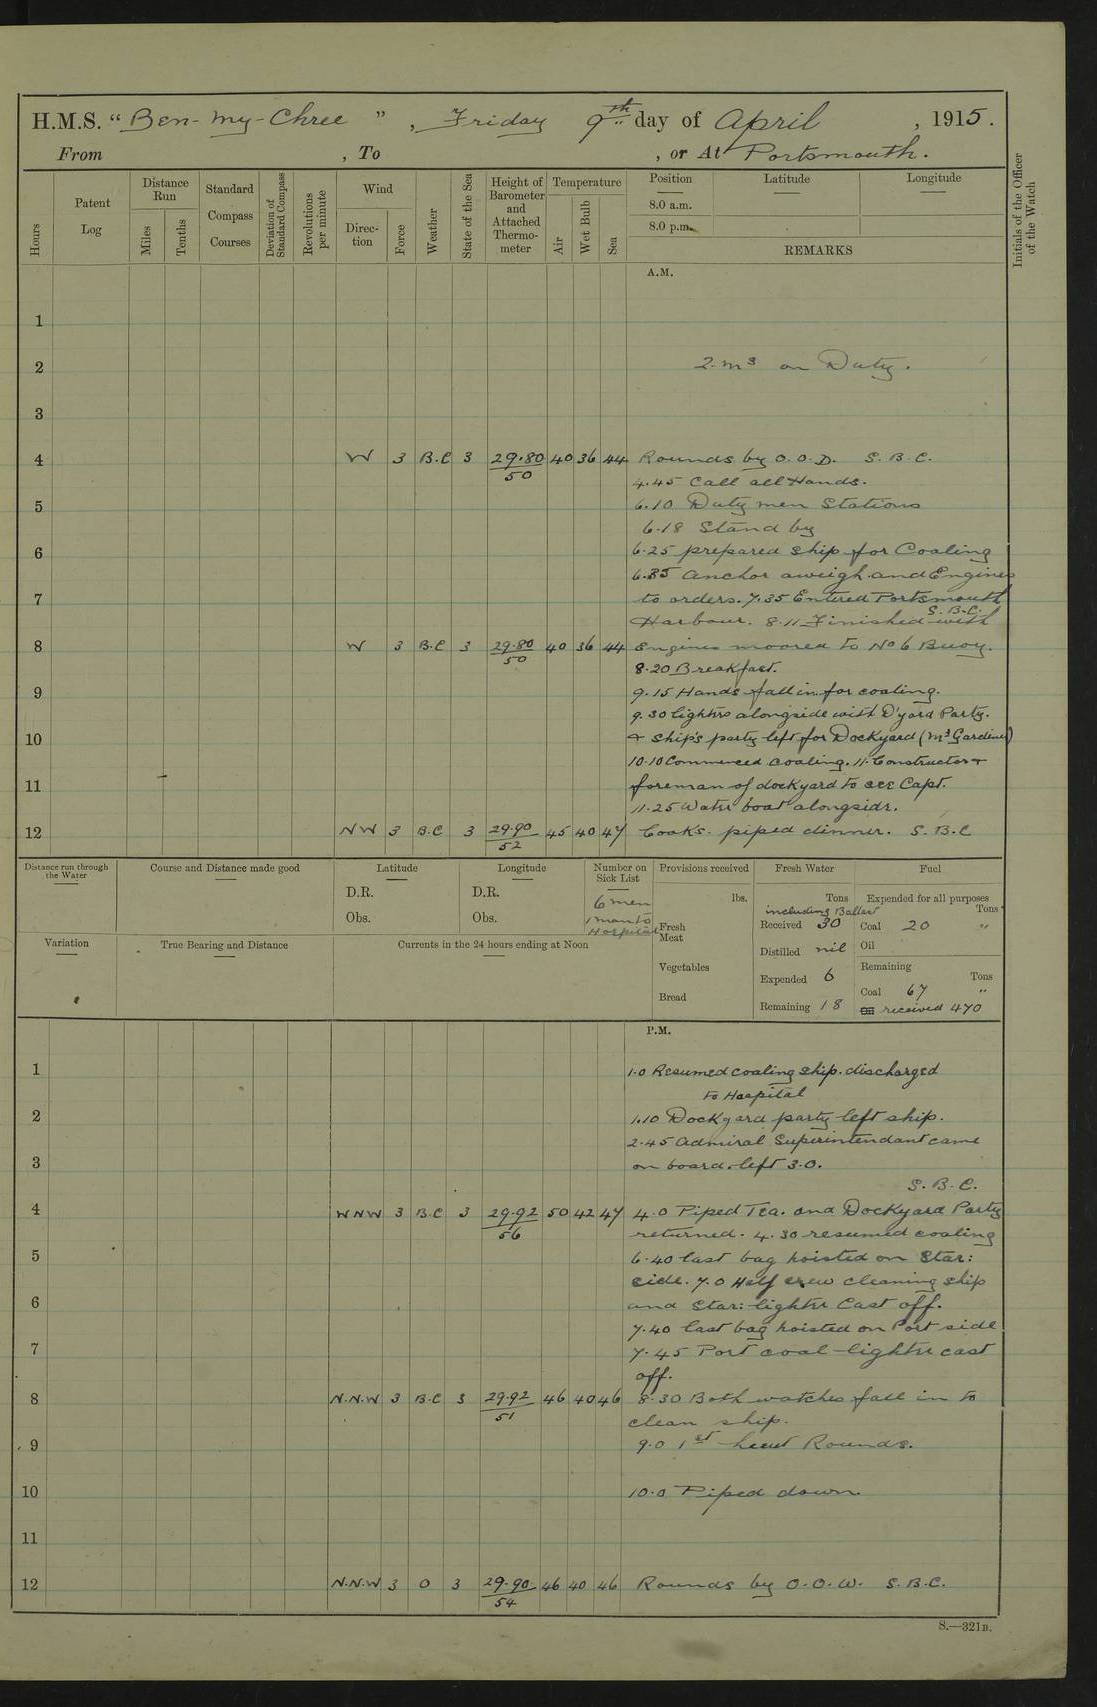 H.M.S. "Ben-my-Chree", Friday 9th day of April, 1915.
From , To , or At Portsmouth.
Hours
Patent Log
Distance Run
Miles
Tenths
Standard Compass Courses
Deviation of Standard Compass
Revolutions per minute
Wind
Direction
Force
Weather
State of the Sea
Height of Barometer and Attached Thermometer
Temperature
Air
Wet Bulb
Sea
Position Latitude Longitude
8.0 a.m.
8.0 p.m.
REMARKS
Initials of the Officer of the Watch
A.M.
1
2 2.M3 on Duty.
3
4 W 3 B.C 3 29.80/50 40 36 44 Rounds by O.O.D. S.B.C.
4.45 Call all Hands.
5 6.10 Duty men Stations
6.18 Stand by
6 6.25 prepared ship for Coaling
6.35 anchor aweigh and Engines
7 to orders. 7.35 Entered Portsmouth
S.B.C.
Harbour. 8.11 Finished with
8 W 3 B.C 3 29.80/50 40 36 44 Engines moored to No 6 Buoy.
8.20 Breakfast.
9 9.15 Hands fall in for coaling.
9.30 lighters alongside with D'yard Party.
10 + Ship's party left for Dockyard (Mr Gardiner)
10.10 Commenced coaling. 11. Constructor +
11 foreman of dockyard to see Capt.
11.25 Water boat alongside.
12 NW 3 B.C 3 29.90/52 45 40 47 Cooks. piped dinner. S.B.C
Distance run through the Water
Course and Distance made good
Latitude
D.R.
Obs.
Longitude
D.R.
Obs.
Number on Sick List
6 men
1 man to Hospital
Provisions received
lbs.
Fresh Meat
Vegetables
Bread
Fresh Water
Tons
including Ballast
Received 30
Distilled nil
Expended 6
Remaining 18
Fuel
Expended for all purposes
Tons
Coal 20 "
Oil
Remaining
Tons
Coal 67 "
Oil received 470
Variation
True Bearing and Distance
Currents in the 24 hours ending at Noon
P.M.
1 1.0 Resumed coaling ship. discharged
to Hospital
2 1.10 Dockyard party left ship.
2.45 Admiral Superintendant came
3 on board. left 3.0.
S.B.C.
4 WNW 3 B.C 3 29.92/56 50 42 47 4.0 Piped Tea. and Dockyard Party
returned. 4.30 resumed coaling
5 6.40 last bag hoisted on Star:
side. 7.0 Half crew cleaning ship
6 and Star: lighter Cast off.
7.40 last bag hoisted on Port side
7 7.45 Port coal-lighter cast
off.
8 N.N.W 3 B.C 3 29.92/51 46 40 46 8.30 Both watches fall in to
clean ship.
9 9.0 1st Lieut Rounds.
10 10.0 Piped down.
11
12 N.N.W 3 O 3 29.90/54 46 40 46 Rounds by O.O.W. S.B.C.
S.—321B.